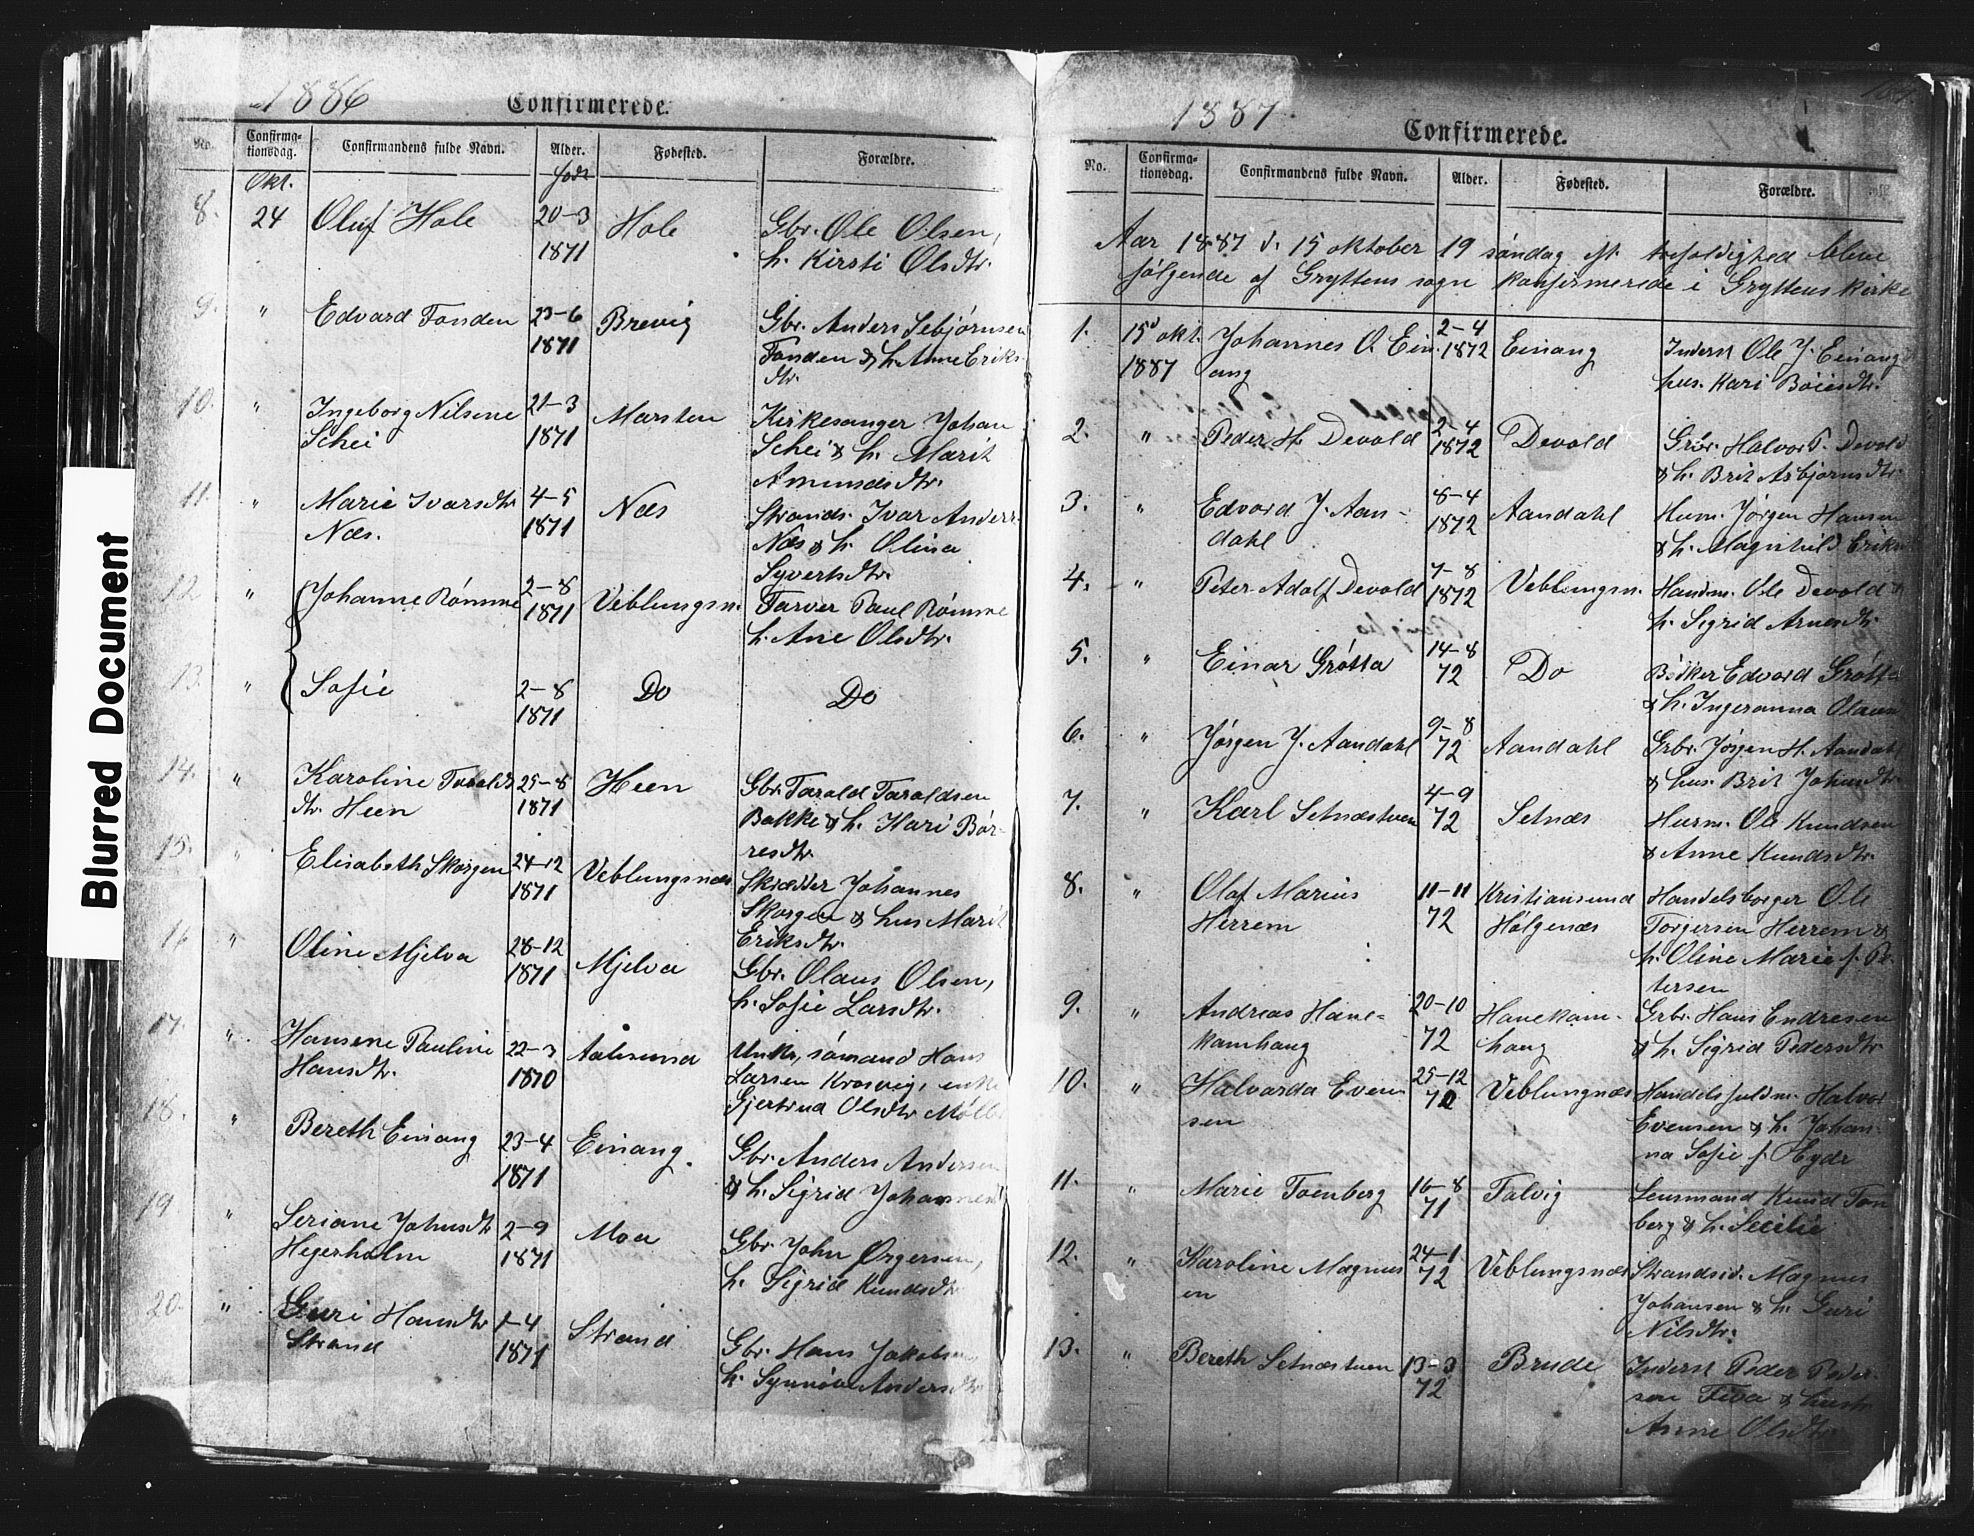 Blurred Document
1886
Confirmerede.
No. Confirma-tionsdag. Confirmandens fulde Navn. Alder. Fødested. Forældre.
Okt. født
8. 24 Oluf Hole 20-3 Hole Gbr. Ole Olsen,
1871 h. Kirsti Olsdtr.
9. " Edvard Tonden 23-6 Brevig Gbr. Anders Sebjørnsen
1871 Tonden & h. Anne Eriks
dtr.
10. " Ingeborg Nilsine 21-3 Marsten Kirkesanger Johan
Schei 1871 Schei & h. Marit
Amundsdtr.
11. " Marie Ivarsdtr 4-5 Næs Strands. Ivar Anders
Næs. 1871 Næs & h. Olina
Syvertsdtr.
12. " Johanne Rømme 2-8 Veblungsn. Farver Paul Rømme
1871 h. Ane Olsdtr.
13. " Sofie 2-8 Do Do
1871
14. " Karoline Tarolds 25-8 Heen Gbr. Tarold Taroldsen
dtr. Heen 1871 Bakke & h. Kari Bør-
resdtr.
15. " Elisabeth Skorgen 24-12 Veblungsnæs Skrædder Johannes
1871 Skorgen & hus Marit
Eriksdtr.
16 " Oline Mjelva 28-12 Mjelva Gbr. Olaus Olsen,
1871 h. Sofie Larsdtr.
17. " Hansine Pauline 22-3 Aalesund Unkr, sømand Hans
Hansdtr. 1870 Larsen Krosvig, enke
Gjertrud Olsdtr
18. " Bereth Einang 23-4 Einang. Gbr. Anders Andersen
1871 & h. Sigrid
19 " Seriane Johnsdtr 2-9 Moa Gbr. John Ørgersen,
Hegerholm 1871 h. Sigrid Knudsdtr
20. " Guri Hansdtr 1-4 Strand Gbr. Hans Jakobsen,
Strand 1871 h. Synnøve Andersdtr
1887.
Confirmerede.
No. Confirma-tionsdag. Confirmandens fulde Navn. Alder. Fødested. Forældre.
Aar 1887 d. 15 oktober 19 søndag eft. trefoldighed bleve
følgende af Gryttens sogn konfirmerede i Gryttens kirke
1. 15d okt. Johannes O. Ein 2-4 Einang Inderst Ole J. Einang
1887 ang 1872 hus. Kari Bøiesdtr.
2. " Peder H. Devold 2-4 Devold Grbr. Halvor P. Devold
1872 & h. Brit Asbjørnsdtr.
3. " Edvard J. Aan- 8-4 Aandahl Husm. Jørgen Hansen
dahl 1872 & h. Magnhild Eriks
4. " Peter Adolf Devold 7-8 Veblungsn. Handm. Ole Devold &
1872 h. Sigrid Arnesdtr.
5. " Einar Grøtta 14-8 Do Bødker Edvard Grøtta
72 & h. Ingeranna
6. " Jørgen J. Aandahl 9-8 Aandahl Grbr. Jørgen H. Aandahl
72 & hus. Brit Johnsdtr.
7. " Karl Setnæstuen 4-9 Setnæs Husm. Ole Knudsen
72 & Anne Knudsdtr.
8. " Olaf Marius 11-11 Kristiansund Handelsborger Ole
Herrem 72 Holgenæs Torgersen Herrem &
h. Oline Marie f. Pe-
tersen
9. " Andreas Hane- 20-10 Hanekam- Grbr. Hans Endresen
kamhaug 72 haug & h. Sigrid Pedersdtr
10. " Halvarda Even 25-12 Veblungnæs Handelsfuldm. Halvor
sen 72 Evensen & h. Johan-
na Sofie f. Hyde
11. " Marie Tonberg 16-8 Talvig Lensmand Knud Ton
71 berg & h. Secilie
12. " Karoline Magnus 24-1 Veblungsnæs Strandsid. Magnus
en 72 Johansen & h. Guri
Nilsdtr.
13. " Bereth Setnæstuen 13-3 Brude Inderst Peder Peder-
72 sen Fiva & hustr
Anne Olsdtr.